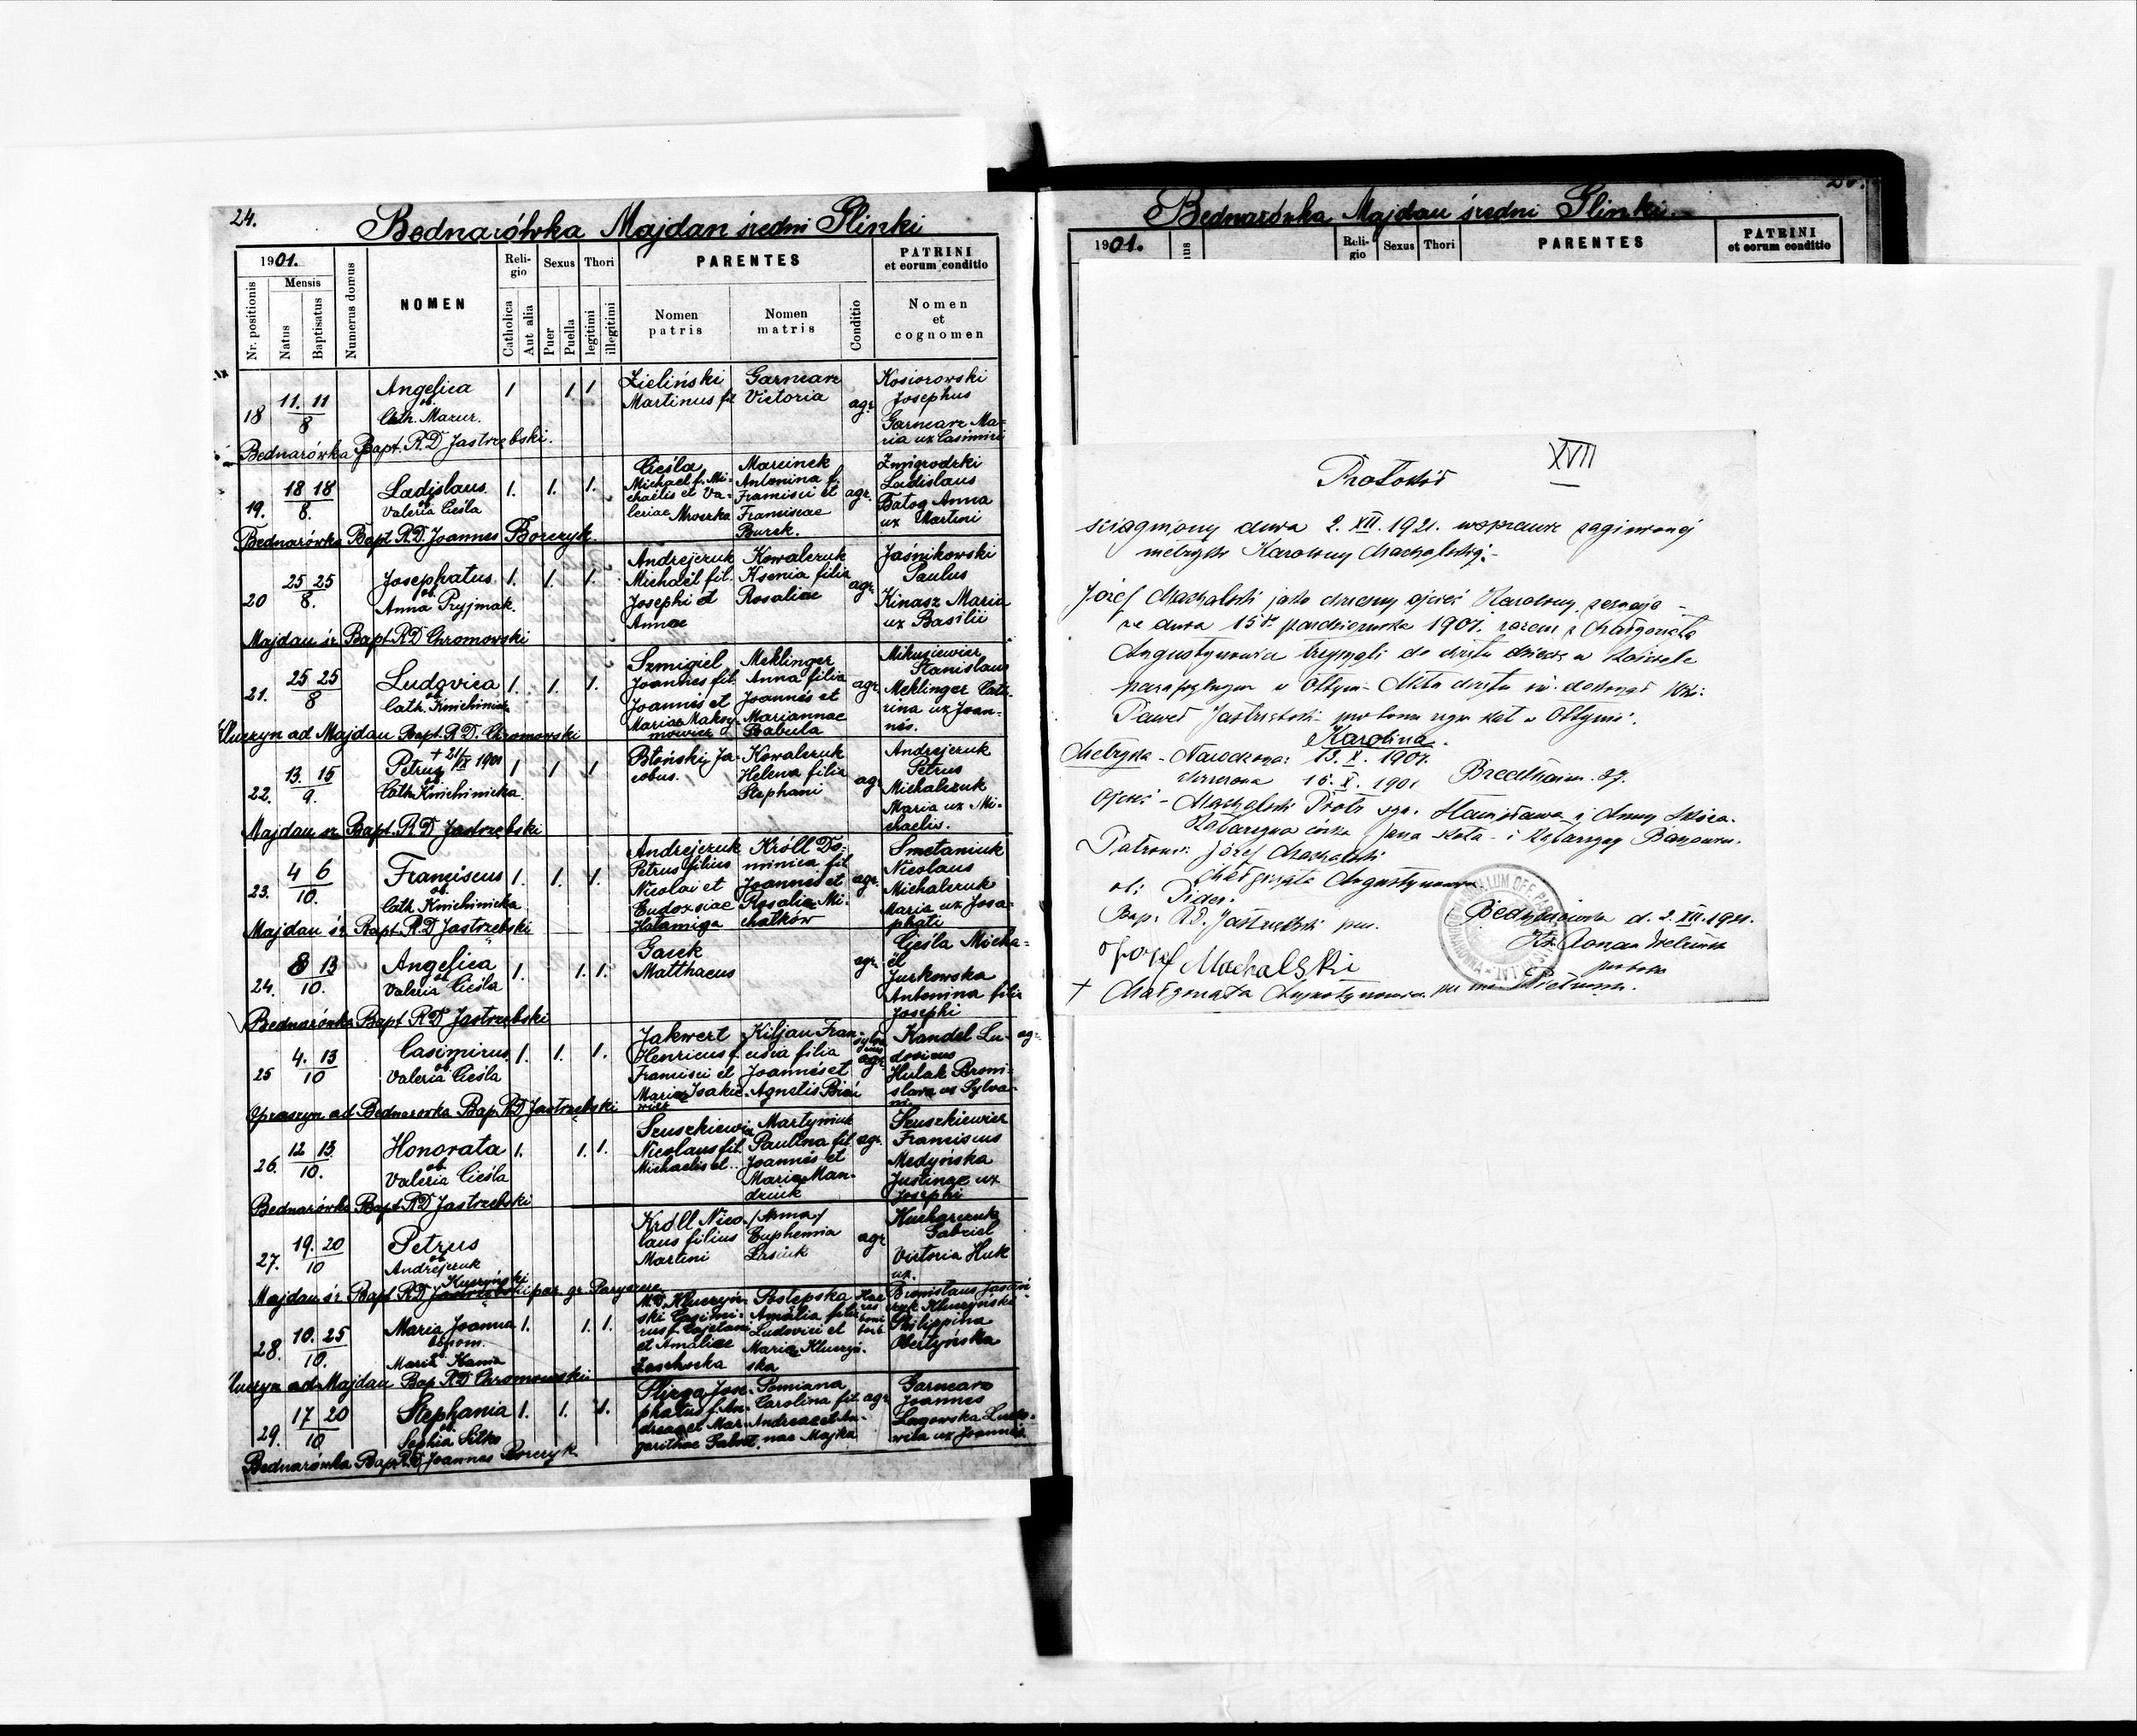 24.
Bednarówka Majdan średni Slinki
1901.
Mensis
Nr. positionis
Natus
Baptisatus
Numerus domus
NOMEN
Religio
Catholica
Aut alia
Sexus
Puer
Puella
Thori
legitimi
illegitimi
PARENTES
Nomen patris
Nomen matris
Conditio
PATRINI
et eorum conditio
Nomen
et
cognomen
18
11. 11
8
Angelica
ob.
Cath. Mazur.
1 1 1
Zieliński
Martinus fil
Garncarz
Victoria
agr.
Kosiorowski
Josephus
Garncarz Ma-
ria ux Casimiri
Bednarówka Bapt. R.D Jastrzębski.
19.
18 18
8.
Ladislaus
ob.
Valeria Cieśla
1. 1. 1.
Cieśla
Michael f. Mi-
chaelis et Va-
leriae Mroczka
Marcinek
Antonina f.
Francisci et
Franciscae
Burek.
agr.
Żmigrodzki
Ladislaus
Batog Anna
ux Martini
Bednarówka Bapt R.D. Joannes Borczyk.
20
25 25
8.
Josephatus
ob.
Anna Pryjmak.
1. 1. 1.
Andrejczuk
Michaël fil.
Josephi et
Annae
Kowalczuk
Ksenia filia
Rosaliae
agr.
Jaśnikowski
Paulus
Kinasz Maria
ux Basilii
Majdan śr Bapt. R.D Chromowski
21.
25 25
8
Ludovica
ob.
Cath. Knichinicka
1. 1. 1.
Szmigiel
Joannes fil.
Joannis et
Mariae Maksy-
mowicz
Meklinger
Anna filia
Joannis et
Mariannae
Babula
agr.
Mikusiewicz
Stanislaus
Meklinger Cath-
rina ux Joan-
nis.
Kluczyn ad Majdan Bapt. R.D. Chromowski
22.
13. 15
9.
+ 21/IX 1901
Petrus
ob.
Cath Knichinicka.
1 1 1
Błoński Ja-
cobus.
Kowalczuk
Helena filia
Stephani
agr.
Andrejczuk
Petrus
Michalczuk
Maria ux Mi-
chaelis.
Majdan śr Bapt. R.D Jastrzębski
23.
4 6
10.
Franciscus
ob.
Cath Knichinicka
1. 1. 1.
Andrejczuk
Petrus filius
Nicolai et
Eudoxiae
Hałamiga
Króll Do-
minica fil.
Joannis et
Rosalia Mi-
chatków
agr.
Smetaniuk
Nicolaus
Michalczuk
Maria ux Josa-
phati
Majdan śr Bapt. R.D Jastrzębski
24.
8 13
10.
Angelica
ob.
Valeria Cieśla
1. 1. 1.
Garek
Matthaeus
agr.
Cieśla Micha-
ël
Jurkowska
Antonina filia
Josephi
Bednarówka Bapt R.D Jastrzębski
25
4. 13
10
Casimirus
ob.
Valeria Cieśla
1. 1. 1.
Jakwert
Henricus f.
Francisci et
Mariae Isakie-
wicz
Kiljan Fran-
cisca filia
Joannis et
Agnetis Bień
agr.
Kandel Lu-
dovicus
Hulak Broni-
slava ux Sylva-
ni.
agr.
Opraszyn ad Bednarówka Bap. R.D Jastrzębski
26.
12 13
10.
Honorata
ob.
Valeria Cieśla
1. 1. 1.
Szuszkiewicz
Nicolaus fil.
Michaelis et..
Martyniuk
Paulina fil.
Joannis et
Maria Man-
driuk
agr.
Szuszkiewicz
Franciscus
Medyńska
Justinae ux
Josephi
Bednarówka Bapt. R.D Jastrzebski
27.
19. 20
10
Petrus
ob.
Andrejczuk
Króll Nico-
laus filius
Martini
/Anna/
Euphemia
Lasiuk
agr
Kucharczuk
Gabriel
Victoria Huk
ux.
Kuczyński
Majdan śr Bapt R.D Jastrzebski par. gr
28.
10. 25
10.
Maria Joanna
binom.
ob.
Maria Kania
1. 1. 1.
M.D Kluczyń-
ski Casimi-
rus f. Cajetani
et Amaliae
Postępska
Amalia filia
Ludovici et
Mariae Kluczyń-
ska
Philippina
Obertyńska
Kluczyn ad Majdan Bap R.D Chromowski
29.
17 20
10.
Stephania
ob.
Sophia Sitko
1. 1. 1.
Slizga Jose-
phatus f. An-
dreae et Mar-
garithae
Pomiana
Carolina fil.
Andreae et An-
nae Majka
agr
Garncarz
Joannes
Lagowska Ludo-
wika ux Joannis
Bednarówka Bap. R.D Joannes Borczyk
Bednarówka Majdan średni Slinki.
1901.
Religio
Sexus
Thori
PARENTES
PATRINI
et eorum conditio
XVII
Protokół
ściągniony dnia 2. XII. 1921. w sprawie zaginionej
metryki Karoliny Machalskiej.-
Józef Machalski jako chrzestny ojciec Karoliny, zeznaje -
że dnia 15go października 1901. razem z Małgorzatą
Augustynowicz trzymali do chrztu dziecko w kościele
parafjalnym w Ottynii. Aktu chrztu św. dokonał
Paweł Jastrzębski proboszcz rzym kat w Ottynii.
Karolina.
Metryka - Narodzona: 13. X. 1901.
chrzczona 15. X. 1901
Ojciec - Machalski Piotr syn. Stanisława i Anny
Katarzyna córka Jana - i Katarzyny
Patroni: Józef Machalski
Małgorzata Augustynowicz
ob:
Bap: R.D. Jastrzębski
Bednarówka d. 2. XII. 1921.
Ks. Roman
Józef Machalski
+ Małgorzata Augustynowicz